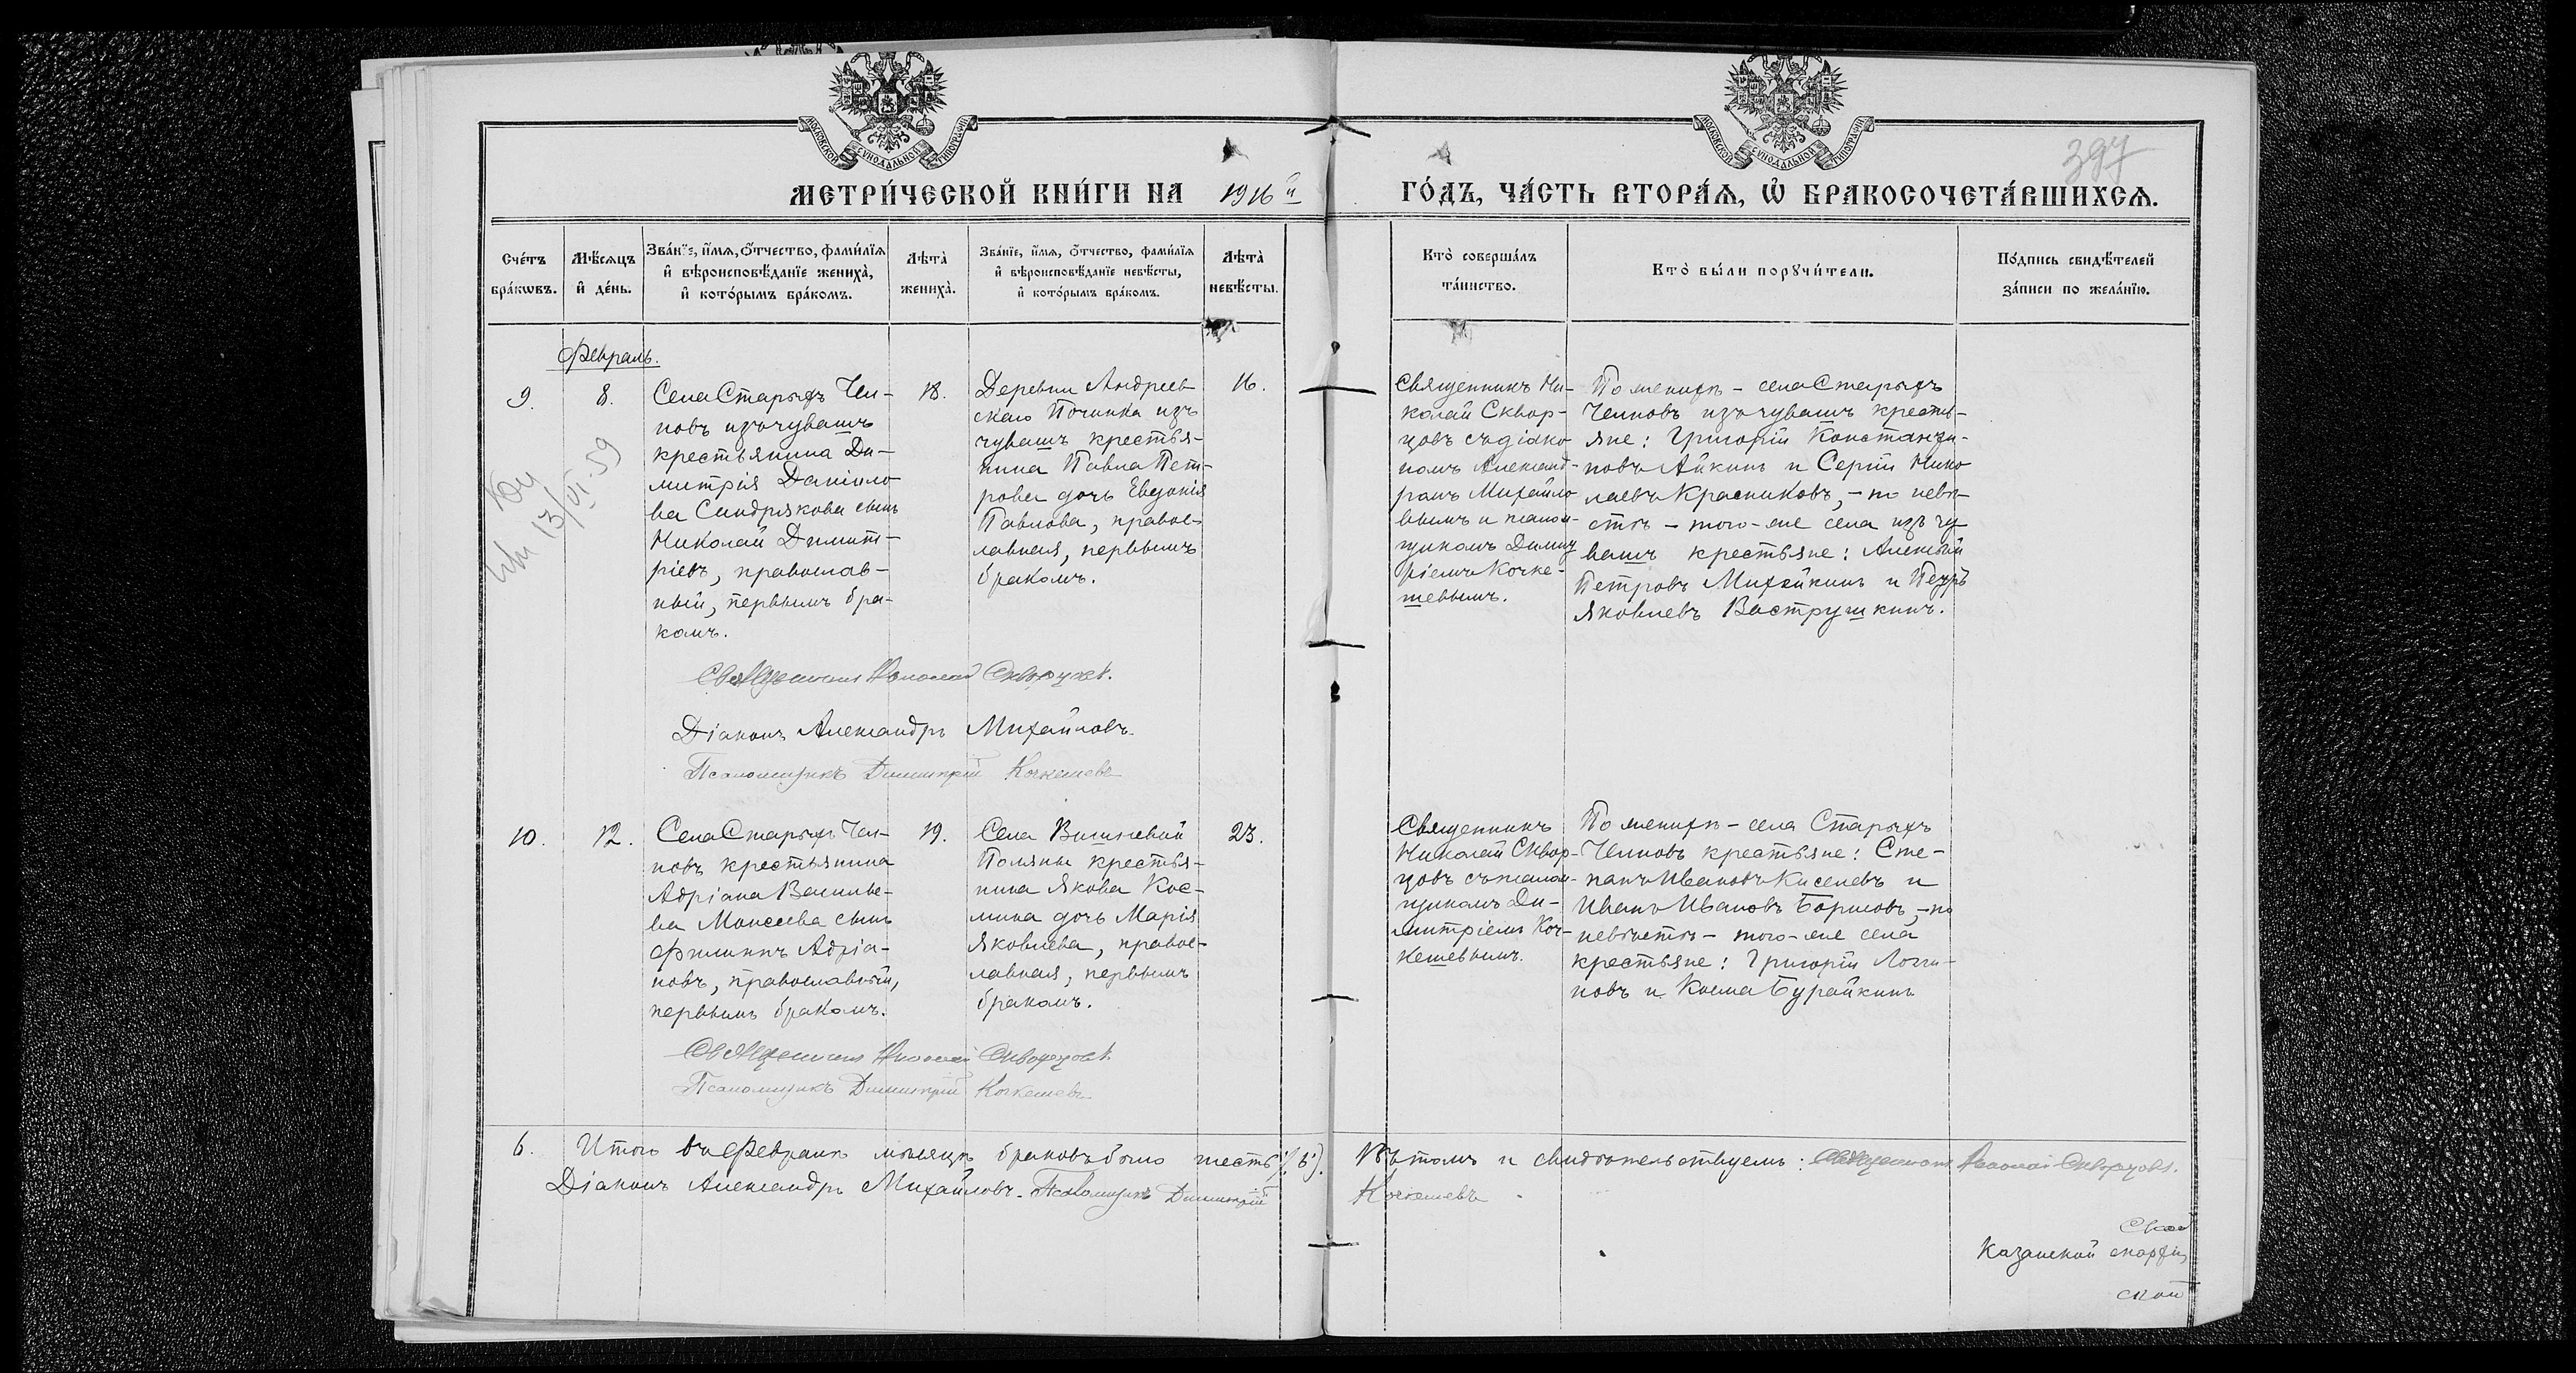 МОСКОВСКОЙ СѴНОДАЛЬНОЙ ТИПОГРАФІИ
МОСКОВСКОЙ СѴНОДАЛЬНОЙ ТИПОГРАФІИ
397
МЕТРИ́ЧЕСКОЙ КНИ́ГИ НА 1916й ГО́ДЪ, ЧА́СТЬ ВТОРА́Ѧ, Ѡ҆ БРАКОСОЧЕТА́ВШИХСѦ.
Сче́тъ бра́кѡвъ.
Мѣ́сѧцъ и҆ де́нь.
Зва́нїе, и҆́мѧ, ѻ҆́тчество, фами́лїѧ
и҆ вѣроисповѣ́данїе женихà,
и҆ кото́рымъ бра́комъ.
Лѣ́та̀ женихà.
Зва́нїе, и҆́мѧ, ѻ҆́тчество, фами́лїѧ
и҆ вѣроисповѣ́данїе невѣ́сты,
и҆ кото́рымъ бра́комъ.
Лѣ́та̀ невѣ́сты.
Кто̀ соверша́лъ
та́инство.
Кто̀ бы́ли порꙋчи́тели.
По́дпись свидѣ́телей
за́писи по жела́нїю.
Февраль.
9.
8.
Села Старыхъ Чел-
новъ изъ чувашъ
крестьянина Ди-
митрія Данило-
ва Синдрякова сынъ
Николай Димит-
ріевъ, православ-
ный, первымъ бра-
комъ.
18.
Деревни Андреев
скаго Починка изъ
чувашъ крестья-
нина Павла Пет-
рова дочь Евдокія
Павлова, правос-
лавная, первымъ
бракомъ.
16.
Священникъ Ни-
колай Сквор-
цовъ съ діако
номъ Александ-
ромъ Михайло
вымъ и псалом-
щикомъ Димит
ріемъ Кочке-
шевымъ.
По женихѣ - села Старыхъ
Челновъ изъ чувашъ кресть-
яне: Григорій Константи-
новъ Айкинъ и Сергій Нико
лаевъ Красниковъ, - по невѣ-
стѣ - того-же села изъ чу
вашъ крестьяне: Алексѣй
Петровъ Михайкинъ и Петръ
Яковлевъ Вострушкинъ.
13/VI-59
Священникъ Николай Скворцовъ.
Діаконъ Александръ Михайловъ.
Псаломщикъ Димитрій Кочкешевъ
10.
12.
Села Старыхъ Чел-
новъ крестьянина
Адріана Василье-
ва Моисеева сынъ
Филиппъ Адріа-
новъ, православный,
первымъ бракомъ.
19.
Села Вишневой
Поляны крестья-
нина Якова Кос-
мина дочь Марія
Яковлева, правос-
лавная, первымъ
бракомъ.
23.
Священникъ
Николай Сквор-
цовъ съ псалом-
щикомъ Ди-
митріемъ Коч-
кешевымъ.
По женихѣ - села Старыхъ
Челновъ крестьяне: Сте-
панъ Ивановъ Киселевъ и
Иванъ Ивановъ Борисовъ, - по
невѣстѣ - того-же села
крестьяне: Григорій Логи-
новъ и Косма Бурайкинъ
Священникъ Николай Скворцовъ.
Псаломщикъ Димитрій Кочкешевъ
6. Итого въ Февралѣ мѣсяцѣ браковъ было шесть (6). Въ томъ и свидѣтельствуемъ: Священникъ Николай Скворцовъ.
Діаконъ Александръ Михайловъ. Псаломщикъ Димитрій Кочкешевъ
Казанской
ской